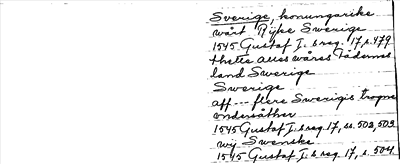 Sverige, konungarike
wårt Rijke Swerige
1545 Gustaf I. s reg. 17, s. 479
thette alles wåres Fädernes
land Swerige
Swerige
aff --- flere Swerigis trogne
vndersåther
1545 Gustaf I. s reg. 17, ss. 502, 503
wij Swenske
1545 Gustaf I. s reg. 17, s. 504